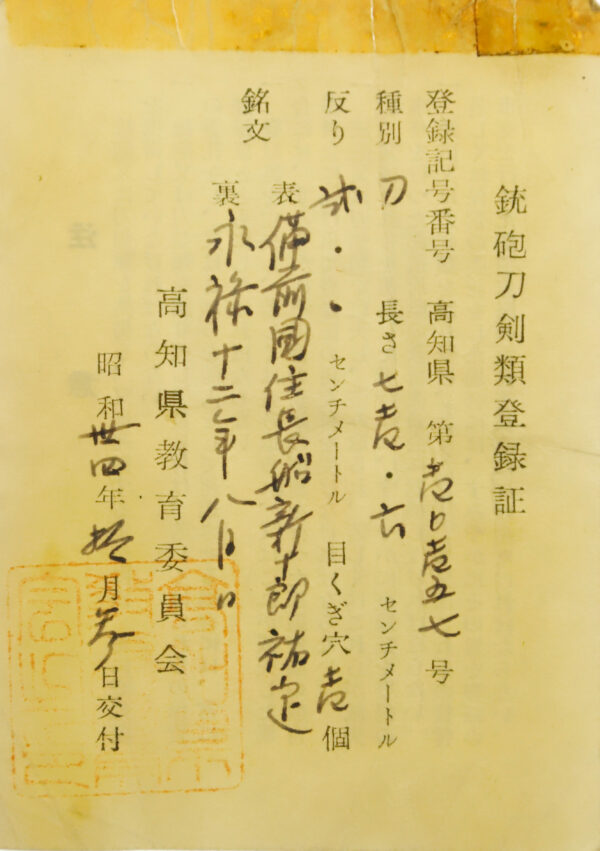 銃砲刀剣類登録証
登録記号番号 高知県 第 壱〇壱五七 号
種別 刀 長さ 七壱・六 センチメートル
反り 弐・ センチメートル 目くぎ穴 壱 個
銘文 表 備前國住長船新十郎祐定
裏 永禄十二年八月日
高知県教育委員会
昭和丗四年拾月参日交付